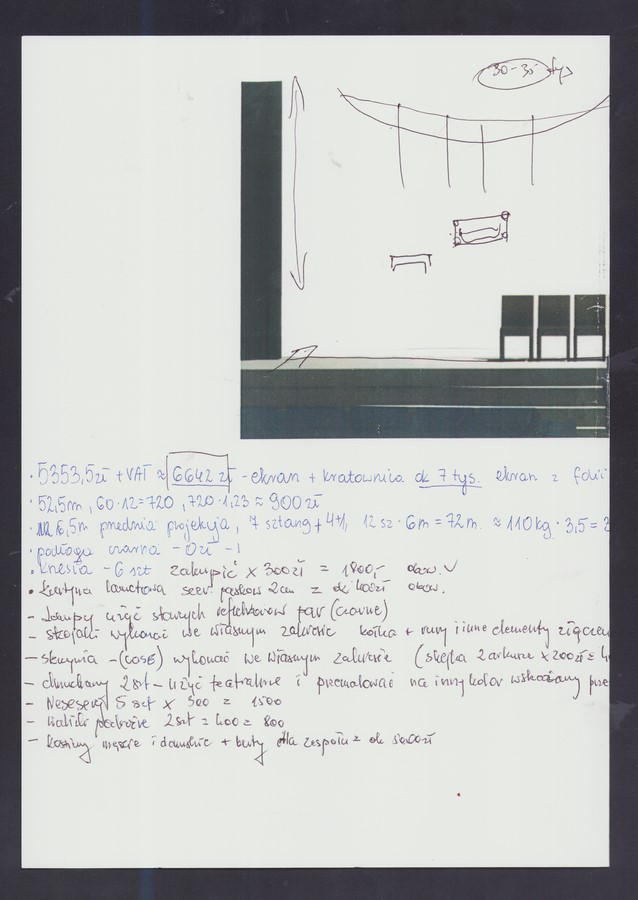 30-35 tys
· 5353,5 zł + VAT ≈ 6642 zł - ekran + kratownica ok 7 tys. ekran z folii
· 52,5m, 60·12=720, 720·1,23 ≈ 900 zł
6,5m przednia projekcja, 7 sztang + 4+1, 12 sz · 6m = 72m. ≈ 110kg · 3,5 =
· podłoga czarna - 0 zł - !
· krzesła - 6 szt zakupić x 300 zł = 1800,-
· kurtyna szer. pasków 2cm z ok
- Lampy użyć starych reflektorów par (czarne)
- stojaki wykonać we własnym zakresie kółka + rury i inne elementy
- skrzynia - (CASE) wykonać we własnym zakresie (sklejka 2 arkusze x 200 zł =
- dmuchawy 2szt - użyć teatralne i przemalować na inny kolor wskazany prze
- Nesesery 5 szt x 300 = 1500
- Walizki podróżne 2szt = 400 = 800
- kostiumy męskie i damskie + buty dla zespołu = ok